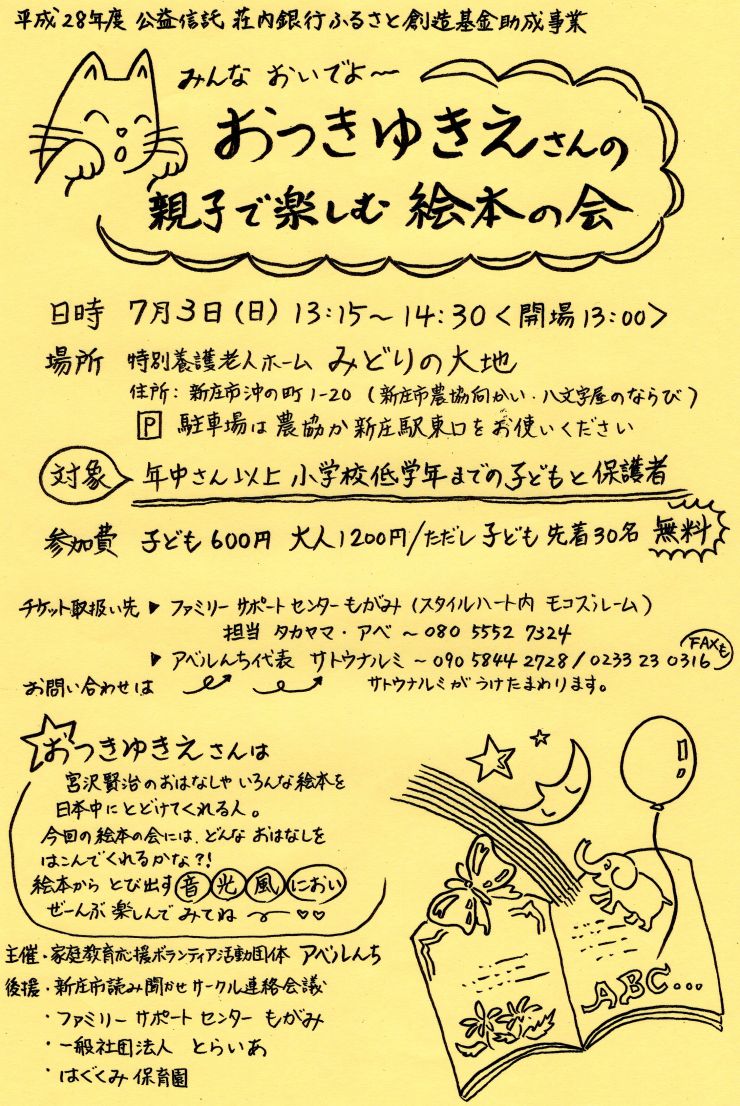 平成28年度 公益信託 荘内銀行ふるさと創造基金助成事業
みんな おいでよ〜
おつきゆきえさんの
親子で楽しむ 絵本の会
日時 7月3日(日) 13:15〜14:30<開場13:00>
場所 特別養護老人ホーム みどりの大地
住所:新庄市沖の町1-20 (新庄市農協向かい・八文字屋のならび)
P 駐車場は農協か新庄駅東口をお使いください
対象 年中さん以上 小学校低学年までの子どもと保護者
参加費 子ども600円 大人1200円/ただし子ども先着30名 無料
チケット取扱い先▶ファミリーサポートセンターもがみ(スタイルハート内 モコズルーム)
担当 タカヤマ・アベ〜080 5552 7324
▶アベルんち代表 サトウナルミ〜090 5844 2728/0233 23 0316 FAXも
お問い合わせは サトウナルミがうけたまわります。
おつきゆきえさんは
宮沢賢治のおはなしや いろんな絵本を
日本中にとどけてくれる人。
今回の絵本の会には、どんな おはなしを
はこんでくれるかな?!
絵本から とび出す 音 光 風 におい
ぜーんぶ 楽しんで みてね 〜♡♡
主催・家庭教育応援ボランティア活動団体 アベルんち
後援・新庄市読み聞かせサークル連絡会議
・ファミリーサポートセンター もがみ
・一般社団法人 とらいあ
・はぐくみ保育園
ABC...